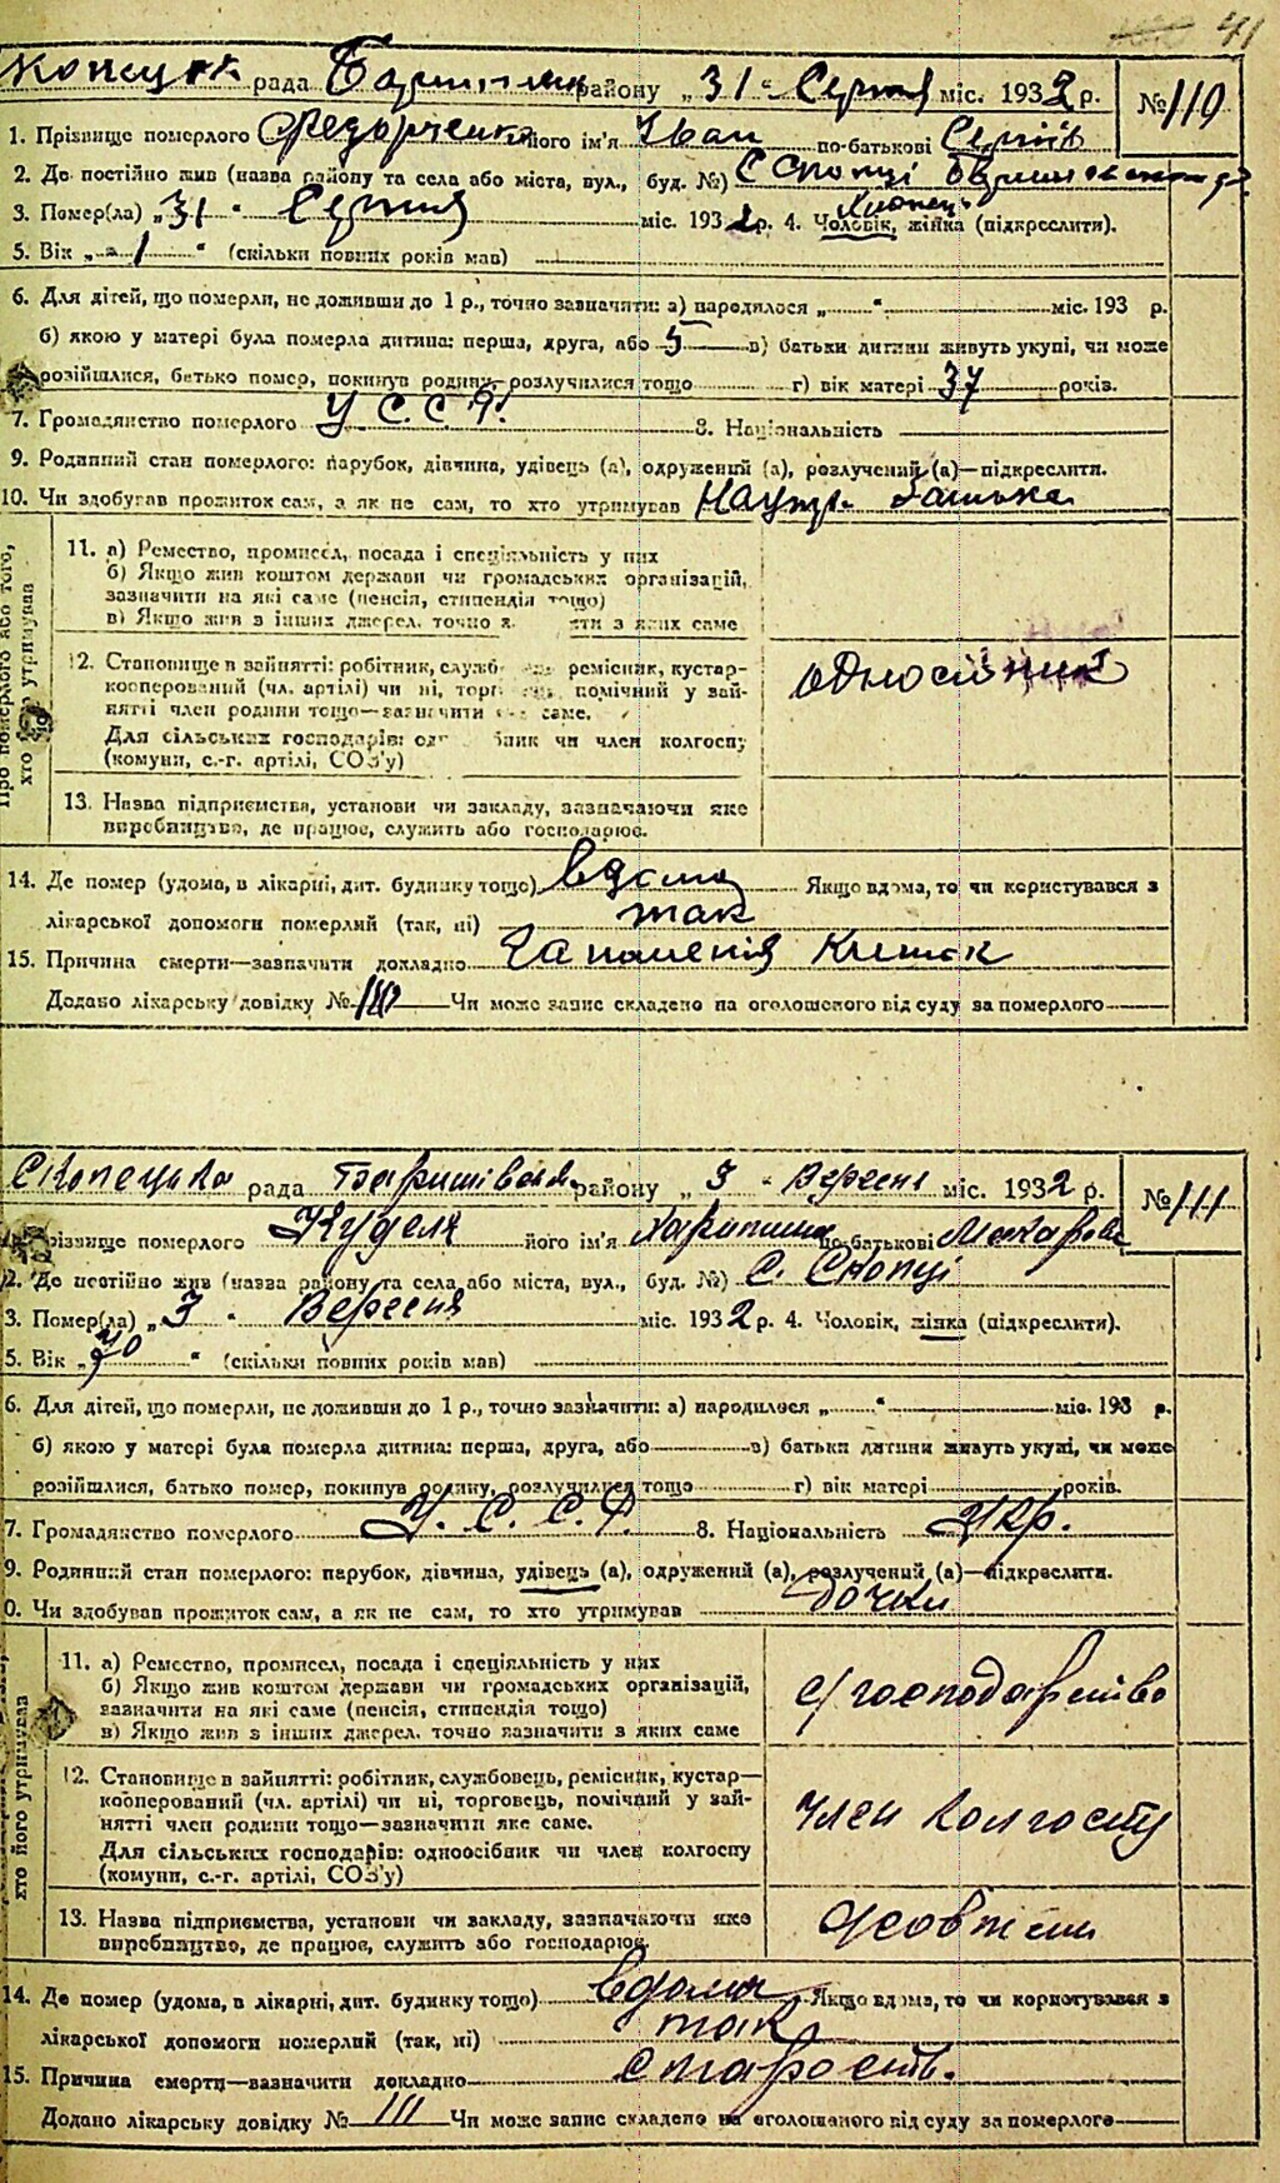 41
рада району „31“ Серпня міс. 1932 р. №110
1. Прізвище померлого Федорченко його ім'я Іван по-батькові Сергіїв
2. Де постійно жив (назва району та села або міста, вул., буд. №) С Скопці
3. Помер(ла) „31“ Серпня міс. 1932 р. 4. Чоловік, жінка (підкреслити).
Хлопець
5. Вік „1“ (скільки повних років мав)
6. Для дітей, що померли, не доживши до 1 р., точно зазначити: а) народилося „ “ міс. 193 р.
б) якою у матері була померла дитина: перша, друга, або 5 в) батьки дитини живуть укупі, чи може
розійшлися, батько помер, покинув родину, розлучилися тощо г) вік матері 37 років.
7. Громадянство померлого У.С.С.Р. 8. Національність
9. Родинний стан померлого: парубок, дівчина, удівець (а), одружений (а), розлучений (а)—підкреслити.
10. Чи здобував прожиток сам, а як не сам, то хто утримував батька
Про померлого або того,
хто утримував
11. а) Ремество, промисел, посада і спеціяльність у них
б) Якщо жив коштом держави чи громадських організацій,
зазначити на які саме (пенсія, стипендія тощо)
в) Якщо жив з інших джерел, точно з яких саме
12. Становище в зайнятті: робітник, служб ремісник, кустар-
кооперований (чл. артілі) чи ні, торг помічний у зай-
нятті член родини тощо—зазначити саме.
Для сільських господарів: од бник чи член колгоспу
(комуни, с.-г. артілі, СОЗ'у)
одноосібник
13. Назва підприємства, установи чи закладу, зазначаючи яке
виробництво, де працює, служить або господарює.
14. Де помер (удома, в лікарні, дит. будинку тощо) вдома Якщо вдома, то чи користувався з
лікарської допомоги померлий (так, ні) так
15. Причина смерти—зазначити докладно Запаленія Кишок
Додано лікарську довідку № 110 Чи може запис складено на оголошеного від суду за померлого
Скопецька рада Баришівськ. району „3“ Вересня міс. 1932 р. №111
Прізвище померлого Куделя його ім'я Харитина по-батькові Макарова
2. Де постійно жив (назва району та села або міста, вул., буд. №) С. Скопці
3. Помер(ла) „3“ Вересня міс. 1932 р. 4. Чоловік, жінка (підкреслити).
5. Вік „70“ (скільки повних років мав)
6. Для дітей, що померли, не доживши до 1 р., точно зазначити: а) народилося „ “ міс. 193 р.
б) якою у матері була померла дитина: перша, друга, або в) батьки дитини живуть укупі, чи може
розійшлися, батько помер, покинув родину, розлучилися тощо г) вік матері років.
7. Громадянство померлого У.С.С.Р. 8. Національність Укр.
9. Родинний стан померлого: парубок, дівчина, удівець (а), одружений (а), розлучений (а)—підкреслити.
0. Чи здобував прожиток сам, а як не сам, то хто утримував дочки
хто його утримував
11. а) Ремество, промисел, посада і спеціяльність у них
б) Якщо жив коштом держави чи громадських організацій,
зазначити на які саме (пенсія, стипендія тощо)
в) Якщо жив з інших джерел, точно зазначити з яких саме
с/господарство
12. Становище в зайнятті: робітник, службовець, ремісник, кустар—
кооперований (чл. артілі) чи ні, торговець, помічний у зай-
нятті член родини тощо—зазначити яке саме.
Для сільських господарів: одноосібник чи член колгоспу
(комуни, с.-г. артілі, СОЗ'у)
член колгоспу
13. Назва підприємства, установи чи закладу, зазначаючи яке
виробництво, де працює, служить або господарює.
14. Де помер (удома, в лікарні, дит. будинку тощо) вдома Якщо вдома, то чи користувався з
лікарської допомоги померлий (так, ні) так
15. Причина смерти—зазначити докладно старость.
Додано лікарську довідку № 111 Чи може запис складено на оголошеного від суду за померлого